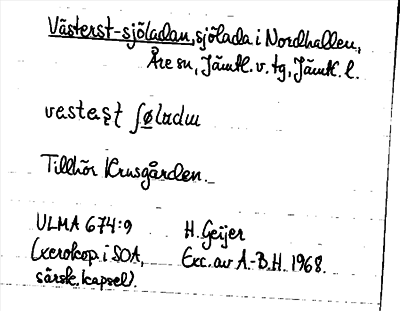 Västerst-sjöladan, sjölada i Nordhallen,
Åre sn, Jämtl. v. tg, Jämtl. l.
Tillhör Krusgården.
ULMA 674:9
(xerokop. i SOA,
särsk. kapsel).
H. Geijer
Exc. av A.-B.H. 1968.